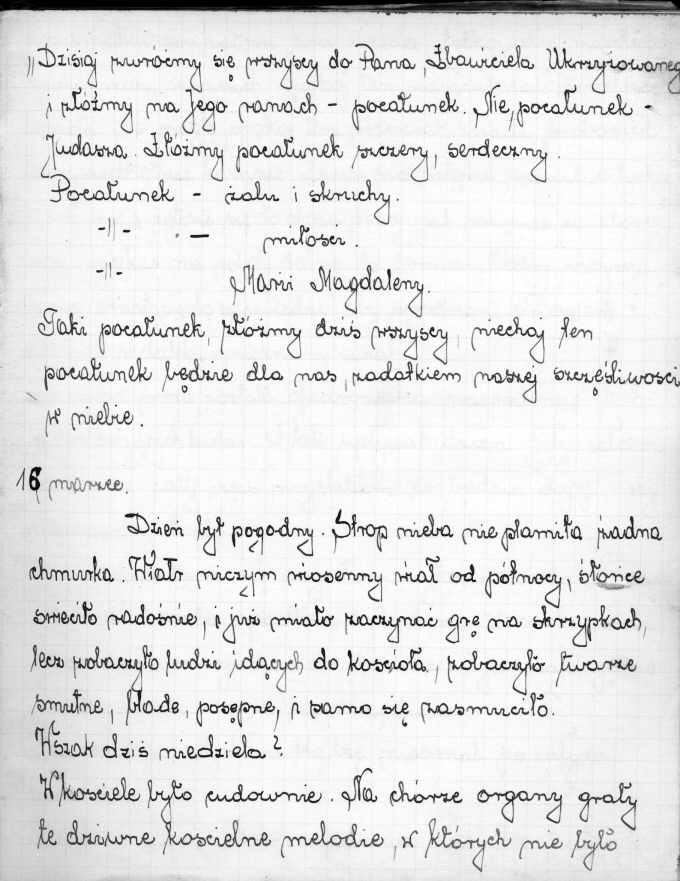 „Dzisiaj zwróćmy się wszyscy do Pana, Zbawiciela Ukrzyżowaneg
i złóżmy na Jego ranach - pocałunek. Nie, pocałunek -
Judasza. Złóżmy pocałunek szczery, serdeczny.
Pocałunek - żalu i skruchy.
-„- - miłości.
-„- Marii Magdaleny.
Taki pocałunek, złóżmy dziś wszyscy, niechaj ten
pocałunek będzie dla nas, zadatkiem naszej szczęśliwości
w niebie.
16 marzec.
Dzień był pogodny. Strop nieba nie plamiła żadna
chmurka. Wiatr niczym wiosenny wiał od północy, słońce
świeciło radośnie, i już miało zaczynać grę na skrzypkach,
lecz zobaczyło ludzi idących do kościoła, zobaczyło twarze
smutne, blade, posępne, i samo się zasmuciło.
Wszak dziś niedziela?
W kościele było cudownie. Na chórze organy grały
te dziwne kościelne melodie, w których nie było